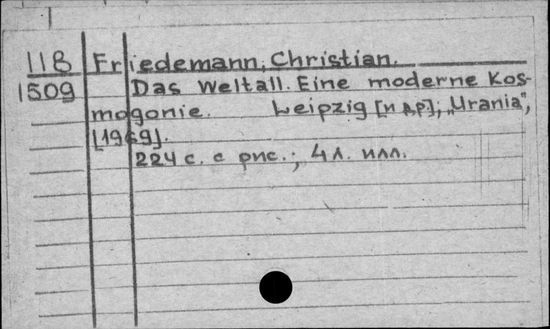 118 Friedemann, Christian.
1509 Das Weltall. Eine moderne Kos-
mogonie. Leipzig [и др], „Urania",
[1969].
224 с. с рис.; 4 л. илл.